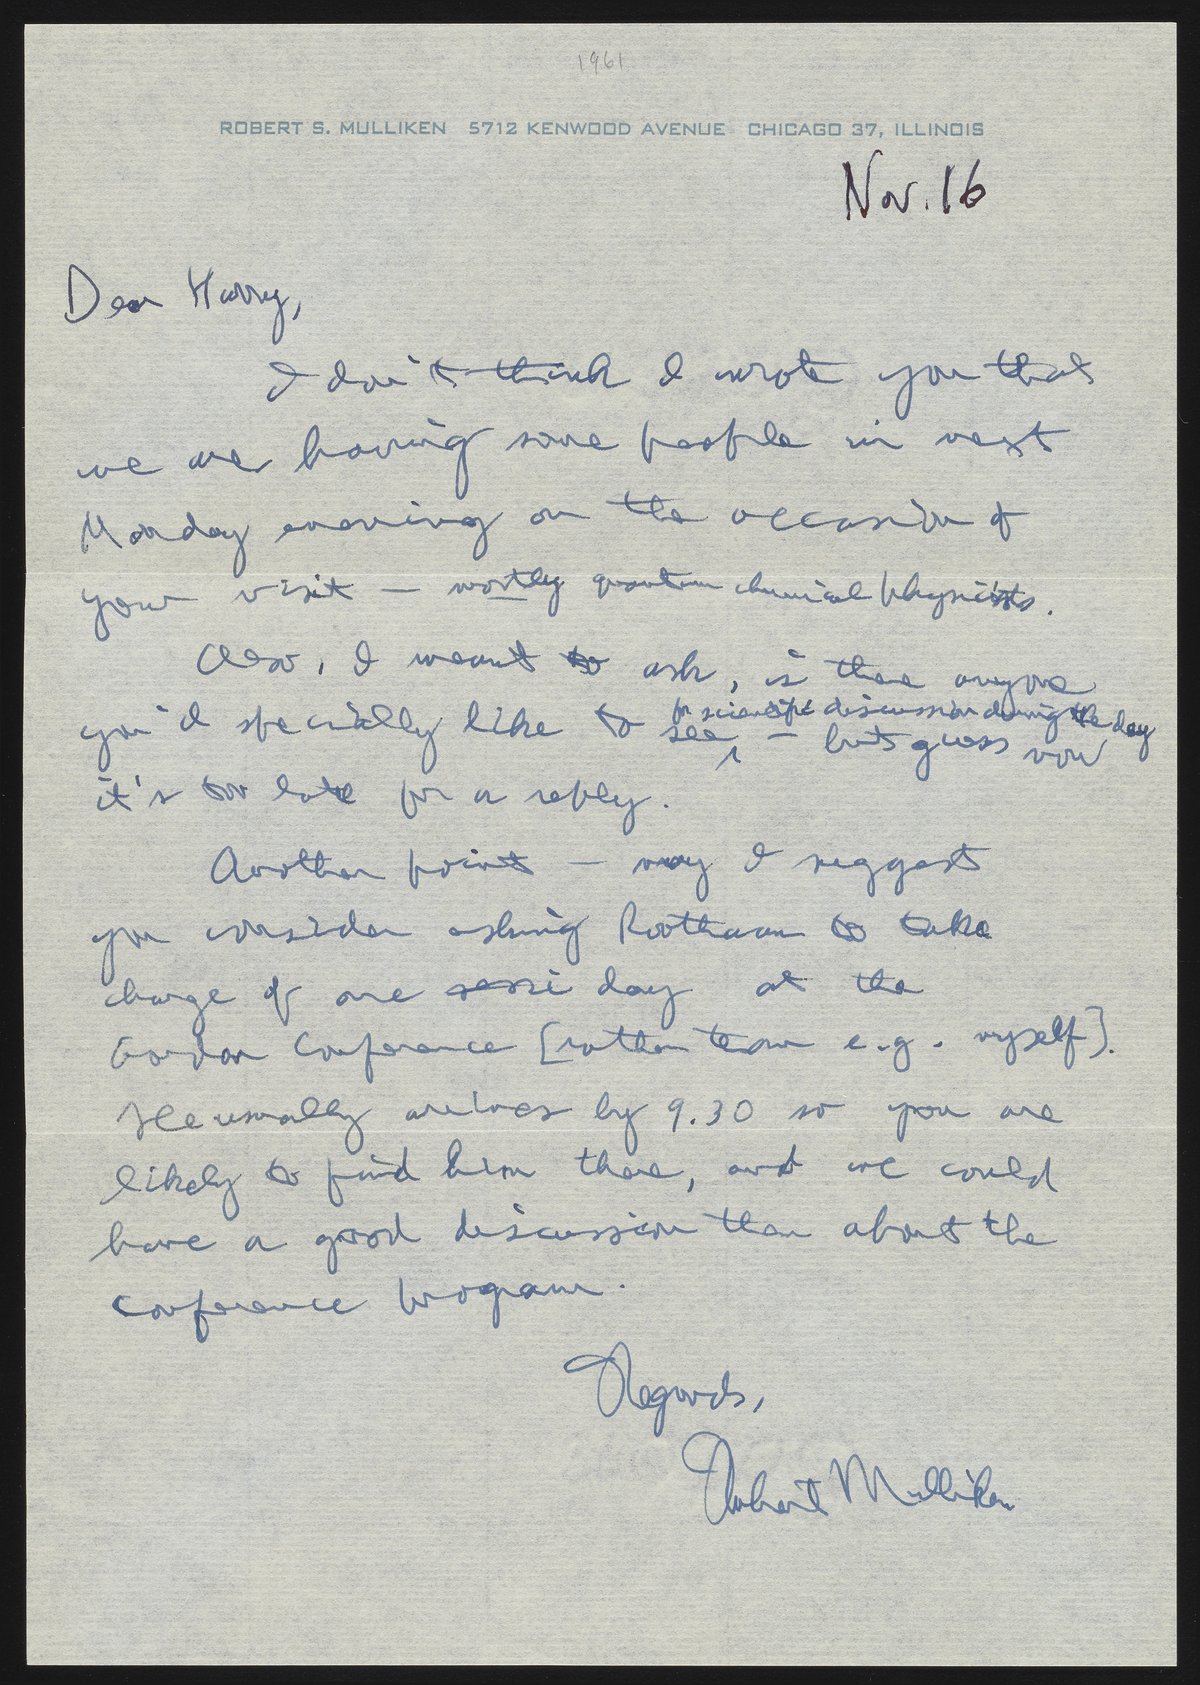 1961
ROBERT S. MULLIKEN 5712 KENWOOD AVENUE CHICAGO 37, ILLINOIS
Nov. 16
Dear Harry,
I don't think I wrote you that
we are having some people in next
Monday evening on the occasion of
your visit — mostly quantum chemical physicists.
Also, I meant to ask, is there anyone
for scientific discussion during the day
you'd specially like to see — but guess now
it's too late for a reply.
Another point — may I suggest
you consider asking Roothaan to take
charge of one sessi day at the
Gordon Conference [rather than e.g. myself].
He usually arrives by 9.30 so you are
likely to find him there, and we could
have a good discussion then about the
conference program.
Regards,
Robert Mulliken